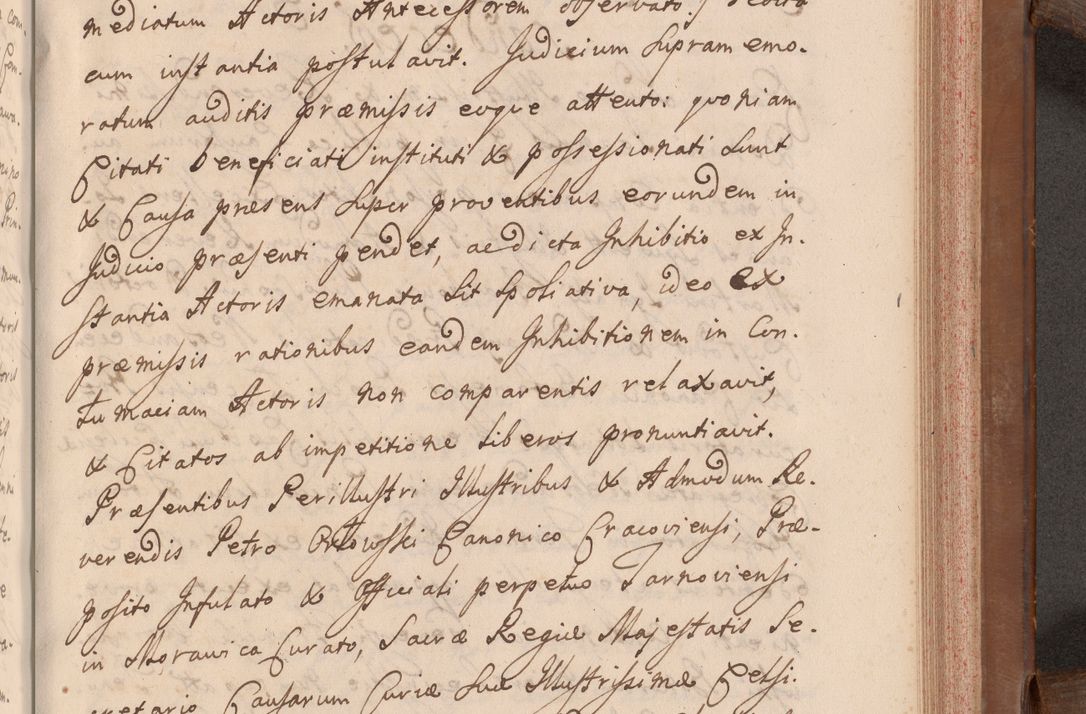 mediatum Actoris Antecessorem observato.
eum instantia postulavit. Judicium supramemo.
ratum auditis præmissis eoque attento: quoniam
Citati beneficiati instituti & possessionati sunt
& Causa præsens super proventibus eorundem in
Judicio præsenti pendet, ac dicta Inhibitio ex In.
stantia Actoris emanata sit spoliativa, ideo ex
præmissis rationibus eandem Inhibitionem in Con.
tumaciam Actoris non comparentis relaxavit,
& Citatos ab impetitione liberos pronuntiavit.
Præsentibus Perillustri Illustribus & Admodum Re.
verendis Petro Canonico Cracoviensi, Præ-
posito Infulato & Officiali perpetuo Tarnoviensi
in Morawica Curato, Sacræ Regiæ Majestatis Se.
cretario Causarum Curiæ suæ Illustrissimæ Celsi.